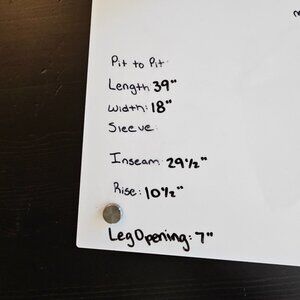 Pit to Pit
Length 39"
Width: 18"
Sleeve:
Inseam: 29 1/2"
Rise: 10 1/2"
Leg Opening: 7"